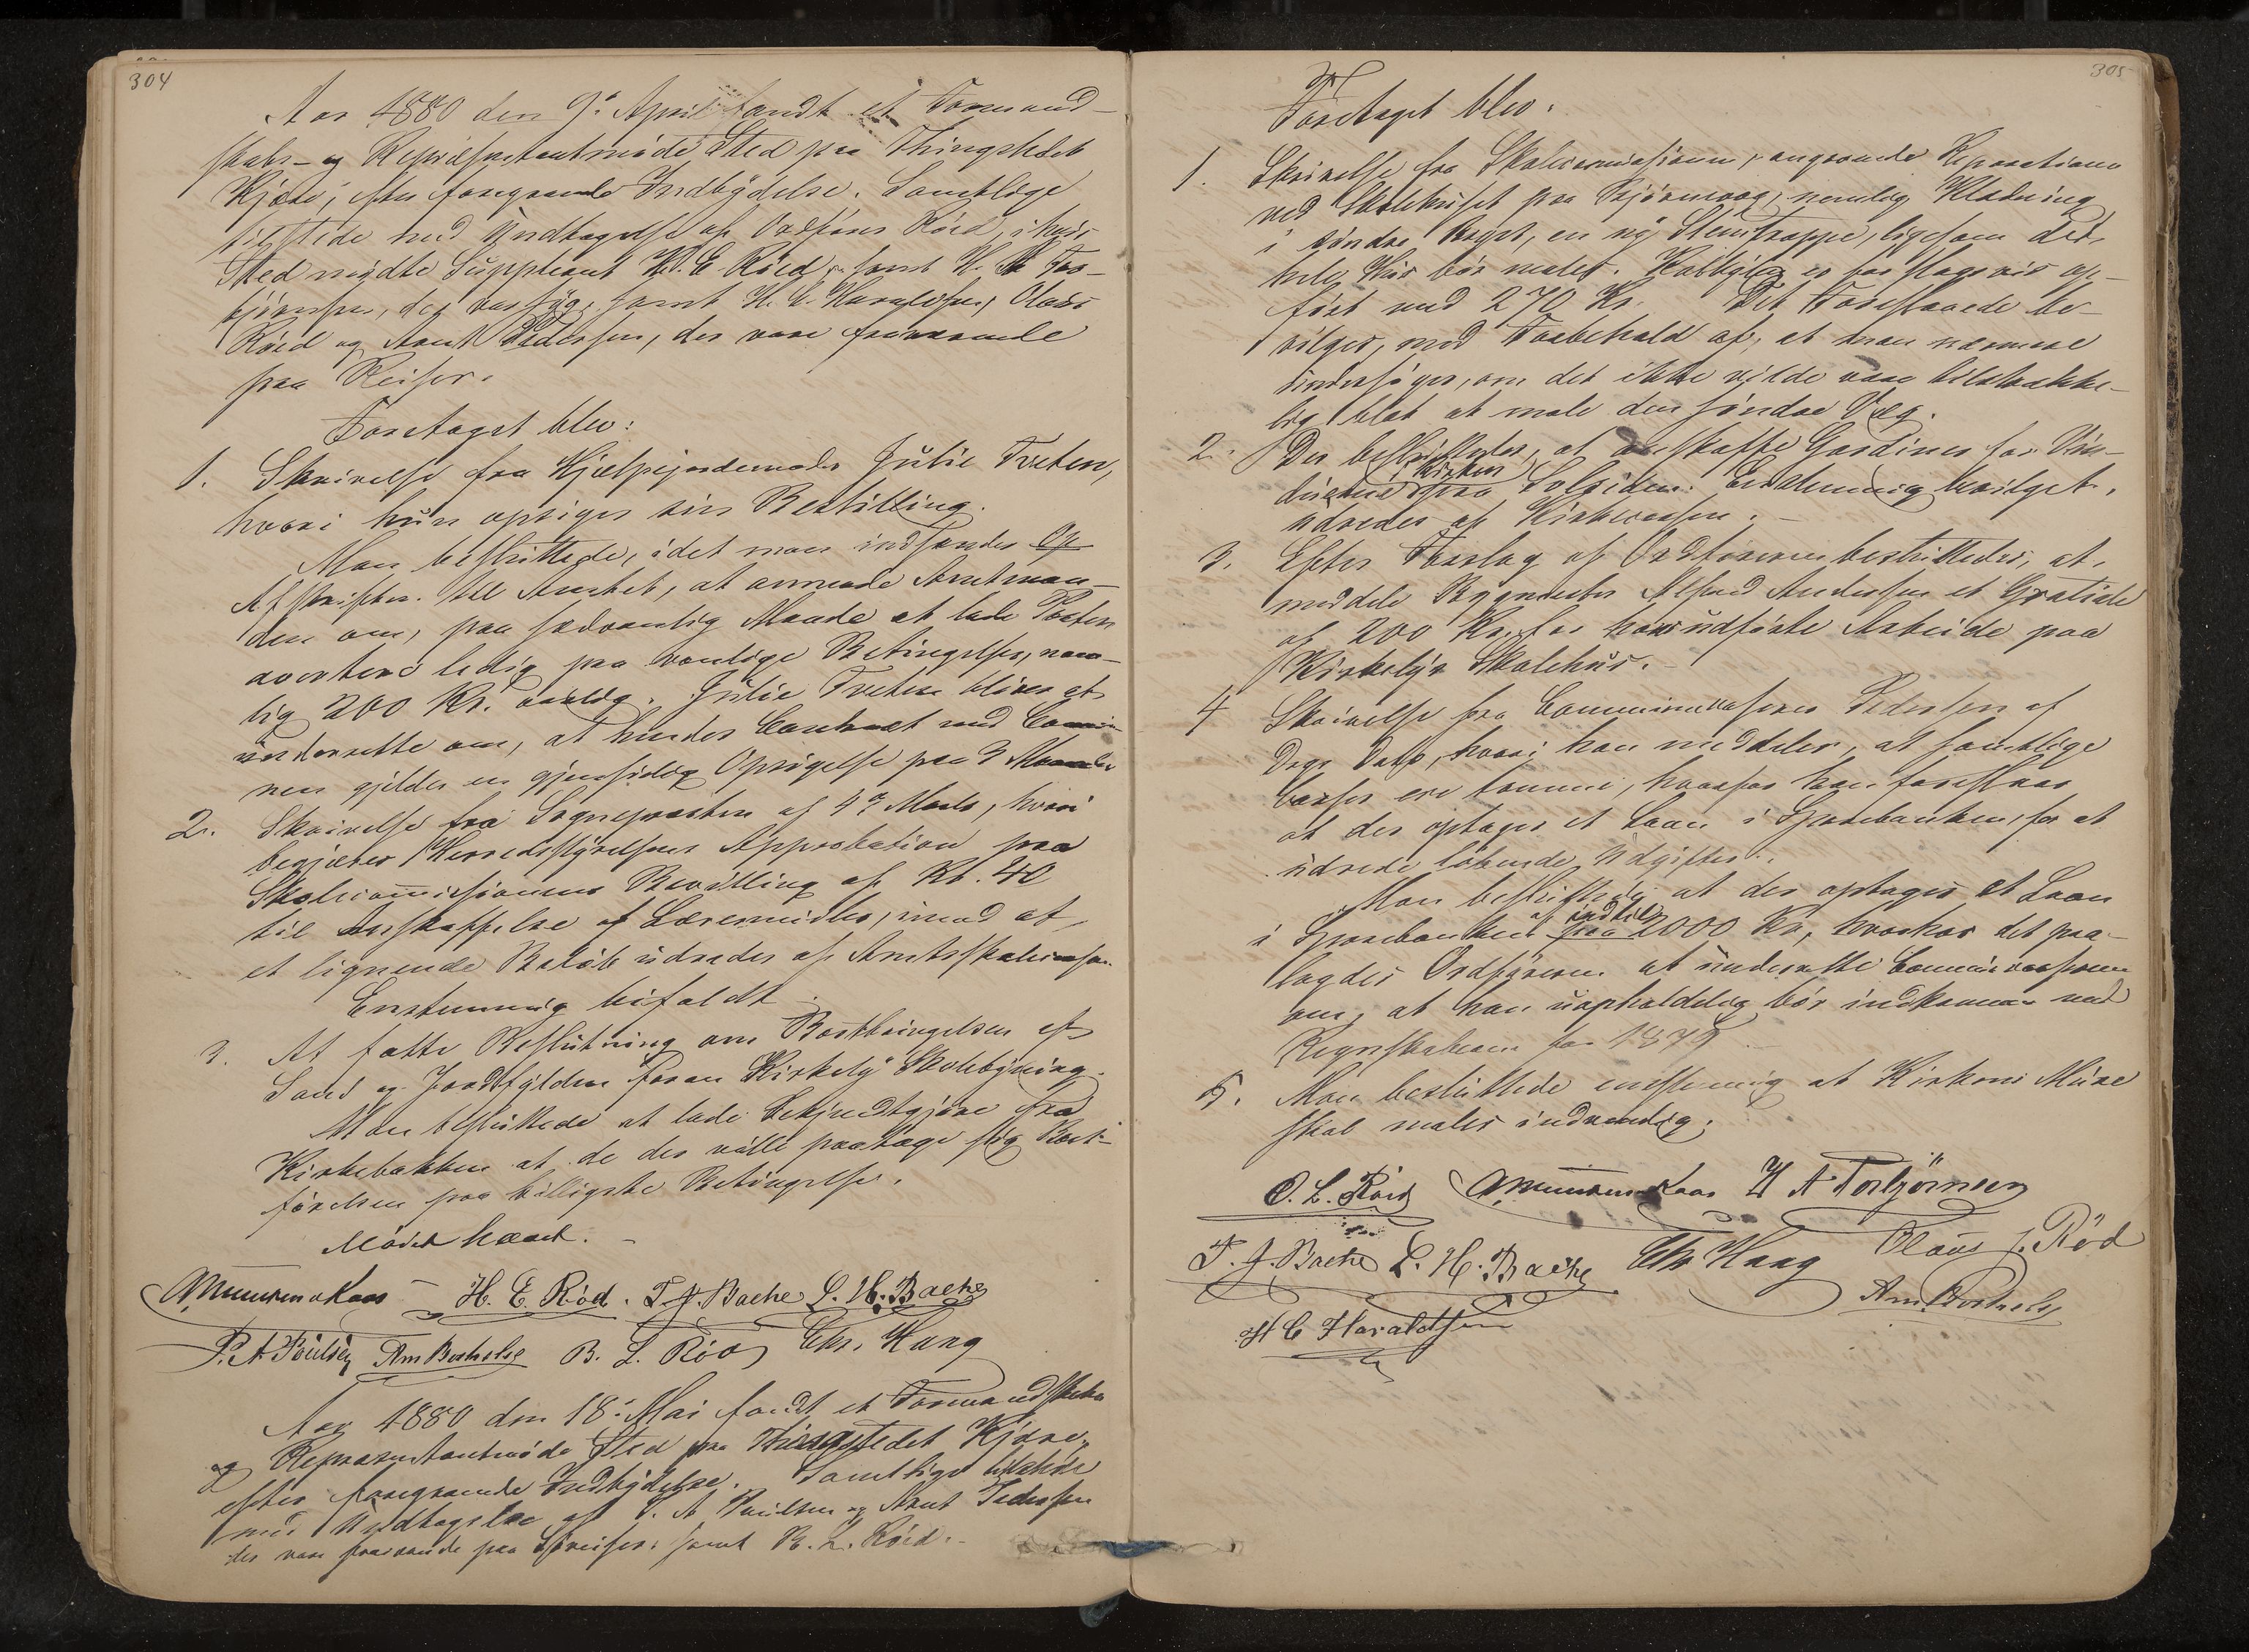 304
Aar 1880 den 9de April fandt et Formand-
skabs- og Repræsentantmøde Sted paa Thingstedet
Kjære, efter foregaaende Indbydelse. Samtlige
tilstede med Undtagelse af Ordfører Røed, i hvis
Sted mødte Suppleant H. E. Røed, samt H. A. Tor-
bjørnsen, der var syg, samt H. C. Haraldsen, Olaus
Røed og Arnt Pedersen, der vare fraværende
paa Reiser.
Foretaget blev:
1. Skrivelse fra Hjælpejordemoder Julie Tveten,
hvori hun opsiger sin Bestilling.
Man besluttede, idet man indsender
Afskrifter til Amtet, at anmode Amtman-
den om, paa sædvanlig Maade at lade Posten
avertere ledig paa vanlige Betingelser, nem-
lig 200 Kr. aarlig. Julie Tveten bliver at
underrette om, at hendes Contract med Commu-
nen gjelder en gjensidig Opsigelse paa 3 Maaneder
2. Skrivelse fra Sognepræsten af 4de Marts, hvori
begjæres Herredsstyrelsens Approbation paa
Skolecommissionens Bevilling af Kr. 40
til Anskaffelse af Læremidler, imod at
et lignende Beløb udredes af Amtsskolekassen.
Enstemmig bifaldt.
3. At fatte Beslutning om Bortbringelsen af
Sand og Jordfylden foran Kirkely Skolebygning.
Man besluttede at lade bekjendtgjøre fra
Kirkebakken at de der ville paatage sig Bort-
førelsen paa billigste Betingelse.
Mødet hævet.
Amundsen Kaas H. E. Röd. T. J. Bache L. H. Bache
P. A. Poulsen Am Bochelie B. L. Röd Chr. Haug
Aar 1880 den 18de Mai fandt et Formandskabs
og Repræsentantmøde Sted paa Thingstedet Kjære,
efter foregaaende Indbydelse. Samtlige tilstede
med Undtagelse af P. A. Poulsen og Arnt Pedersen
der vare fraværende paa Søreiser, samt B. L. Röed.
305
Foretaget blev:
1. Skrivelse fra Skolecommissionen, angaaende Reparationer
ved Skolehuset paa nemlig Klædning
i søndre Væg, en ny Stentrappe, ligesom det
hele Hus bør males. Halvgjort er forslagsvis op-
ført med 270 Kr. Det Foreslaaede be-
vilges, med Forbehold af, at man nærmere
undersøger, om det ikke vilde være tilstrække-
lig blot at male den søndre Væg.
2. Der besluttedes, at anskaffe Gardiner for Vin-
duerne i Kirken paa Solsiden. Enstemmig bevilget.
udredes af Kirkecassen.
3. Efter Forslag af Ordføreren besluttedes, at
meddele Bygmester Alfred Andersen et Gratiale
af 200 Kr. for hans udførte Arbeide paa
Kirkelys Skolehus.
4 Skrivelse fra Communecasserer Pedersen af
Dags Dato, hvori han meddeler, at samtlige
Casser ere tomme, hvorfor han foreslaar
at der optages et Laan i Sparebanken, for at
udrede løbende Udgifter.
Man besluttede, at der optages et Laan
i Sparebanken af indtil 2000 Kr, hvorhos det paa-
lagdes Ordføreren at underrette Communecassereren
om, at han uopholdelig bør indkomme med
Regnskaberne for 1879.
5. Man besluttede enstemmig at Kirkens Mure
skal males indvendig.
O. L. Röed Amundsen Kaas H A Torbjörnsen
T. J. Bache L. H. Bache Chr Haug Olaus J. Röd
Am Bochelie
H C Haraldsen